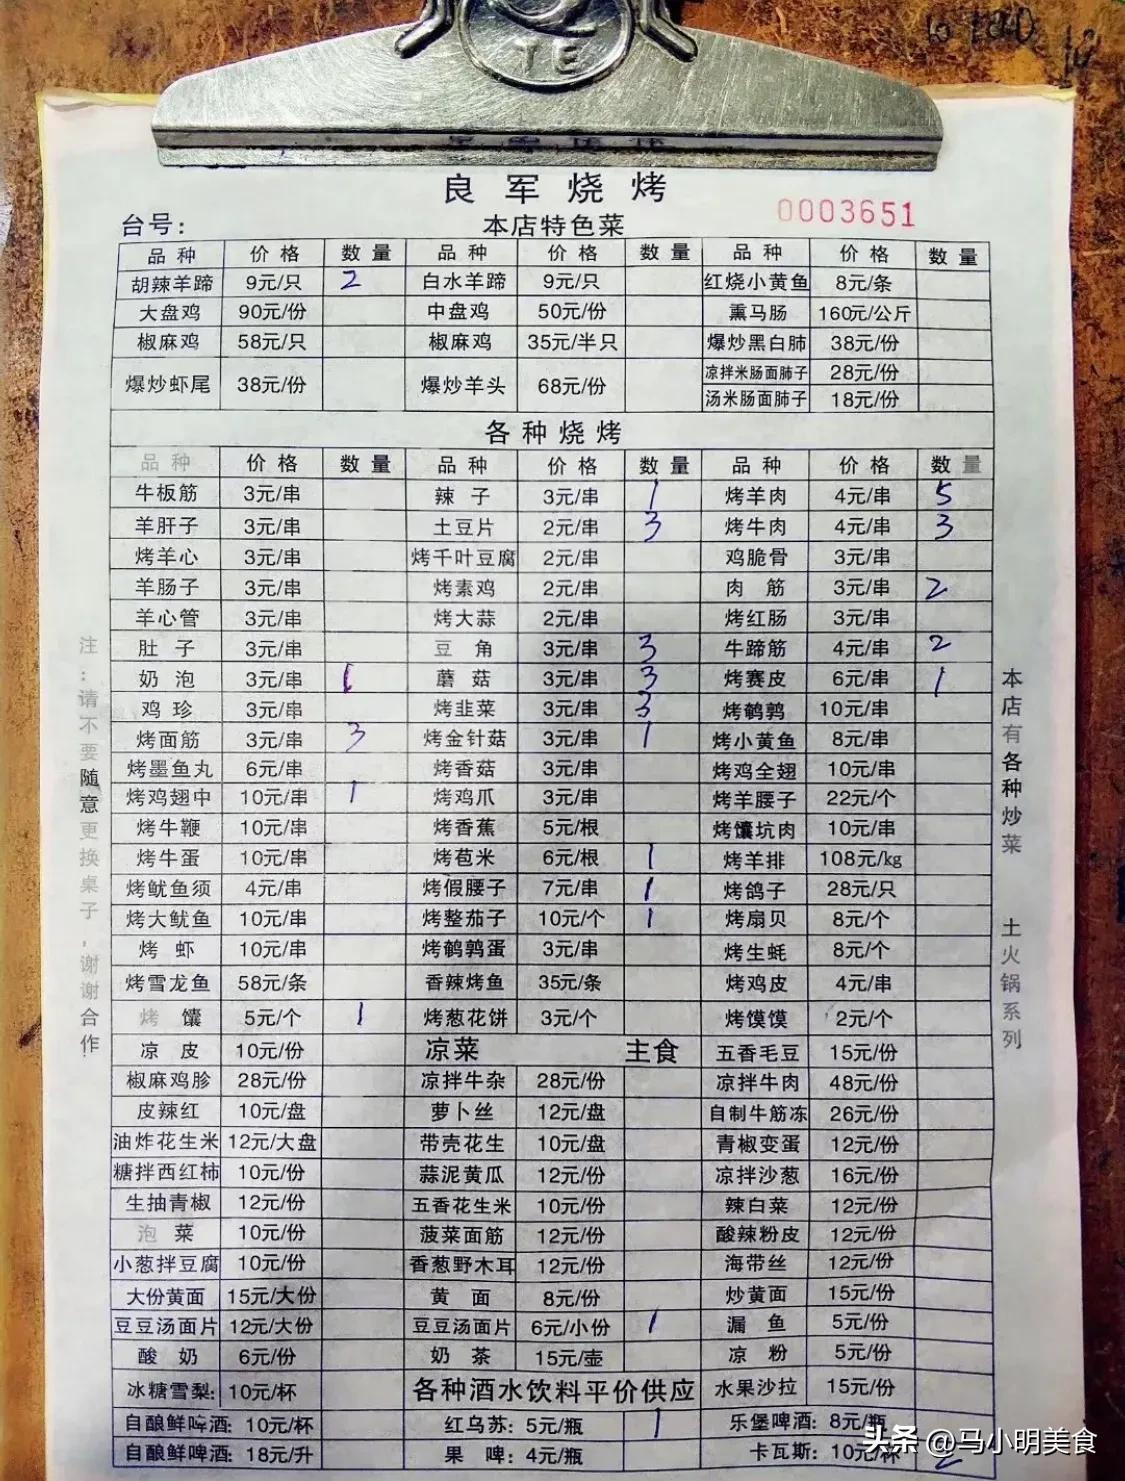 TE
良军烧烤
0003651
台号： 本店特色菜
品种 价格 数量 品种 价格 数量 品种 价格 数量
胡辣羊蹄 9元/只 2 白水羊蹄 9元/只 红烧小黄鱼 8元/条
大盘鸡 90元/份 中盘鸡 50元/份 熏马肠 160元/公斤
椒麻鸡 58元/只 椒麻鸡 35元/半只 爆炒黑白肺 38元/份
爆炒虾尾 38元/份 爆炒羊头 68元/份 凉拌米肠面肺子 28元/份
汤米肠面肺子 18元/份
各种烧烤
品种 价格 数量 品种 价格 数量 品种 价格 数量
牛板筋 3元/串 辣子 3元/串 1 烤羊肉 4元/串 5
羊肝子 3元/串 土豆片 2元/串 3 烤牛肉 4元/串 3
烤羊心 3元/串 烤千叶豆腐 2元/串 鸡脆骨 3元/串
羊肠子 3元/串 烤素鸡 2元/串 肉筋 3元/串 2
羊心管 3元/串 烤大蒜 2元/串 烤红肠 3元/串
肚子 3元/串 豆角 3元/串 3 牛蹄筋 4元/串 2
奶泡 3元/串 1 蘑菇 3元/串 3 烤赛皮 6元/串 1
鸡珍 3元/串 烤韭菜 3元/串 3 烤鹌鹑 10元/串
烤面筋 3元/串 3 烤金针菇 3元/串 1 烤小黄鱼 8元/串
烤墨鱼丸 6元/串 烤香菇 3元/串 烤鸡全翅 10元/串
烤鸡翅中 10元/串 1 烤鸡爪 3元/串 烤羊腰子 22元/个
烤牛鞭 10元/串 烤香蕉 5元/根 烤馕坑肉 10元/串
烤牛蛋 10元/串 烤苞米 6元/根 1 烤羊排 108元/kg
烤鱿鱼须 4元/串 烤假腰子 7元/串 1 烤鸽子 28元/只
烤大鱿鱼 10元/串 烤整茄子 10元/个 1 烤扇贝 8元/个
烤虾 10元/串 烤鹌鹑蛋 3元/串 烤生蚝 8元/个
烤雪龙鱼 58元/条 香辣烤鱼 35元/条 烤鸡皮 4元/串
烤馕 5元/个 1 烤葱花饼 3元/个 烤馍馍 2元/个
凉皮 10元/份 凉菜 主食 五香毛豆 15元/份
椒麻鸡胗 28元/份 凉拌牛杂 28元/份 凉拌牛肉 48元/份
皮辣红 10元/盘 萝卜丝 12元/盘 自制牛筋冻 26元/份
油炸花生米 12元/大盘 带壳花生 10元/盘 青椒变蛋 12元/份
糖拌西红柿 10元/份 蒜泥黄瓜 12元/份 凉拌沙葱 16元/份
生抽青椒 12元/份 五香花生米 10元/份 辣白菜 12元/份
泡菜 10元/份 菠菜面筋 12元/份 酸辣粉皮 12元/份
小葱拌豆腐 10元/份 香葱野木耳 12元/份 海带丝 12元/份
大份黄面 15元/大份 黄面 8元/份 炒黄面 15元/份
豆豆汤面片 12元/大份 豆豆汤面片 6元/小份 1 漏鱼 5元/份
酸奶 6元/份 奶茶 15元/壶 凉粉 5元/份
冰糖雪梨：10元/杯 各种酒水饮料平价供应 水果沙拉 15元/份
自酿鲜啤酒：10元/杯 红乌苏：5元/瓶 1 乐堡啤酒：8元/瓶
自酿鲜啤酒：18元/升 果啤：4元/瓶 卡瓦斯：10元/杯 2
注：请不要随意更换桌子，谢谢合作！
本店有各种炒菜 土火锅系列
头条 @马小明美食